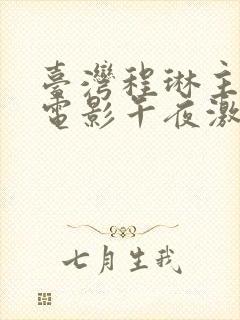 臺灣程琳主
電影午夜激
七月生我